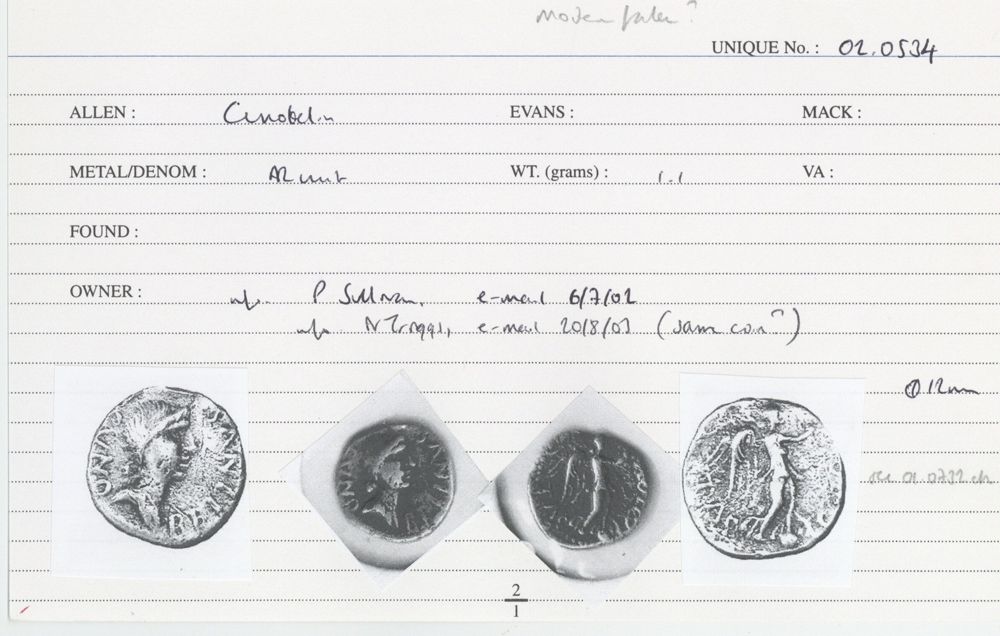 Modern
UNIQUE No. : 02.0534
ALLEN : Cunobelin EVANS : MACK :
METAL/DENOM : AR unit WT. (grams) : 1.1 VA :
FOUND :
OWNER : P Sullivan, e-mail 6/7/02
N Triggs, e-mail 20/8/03 (same coin?)
Φ 12mm
see 01.0732 etc
2
1